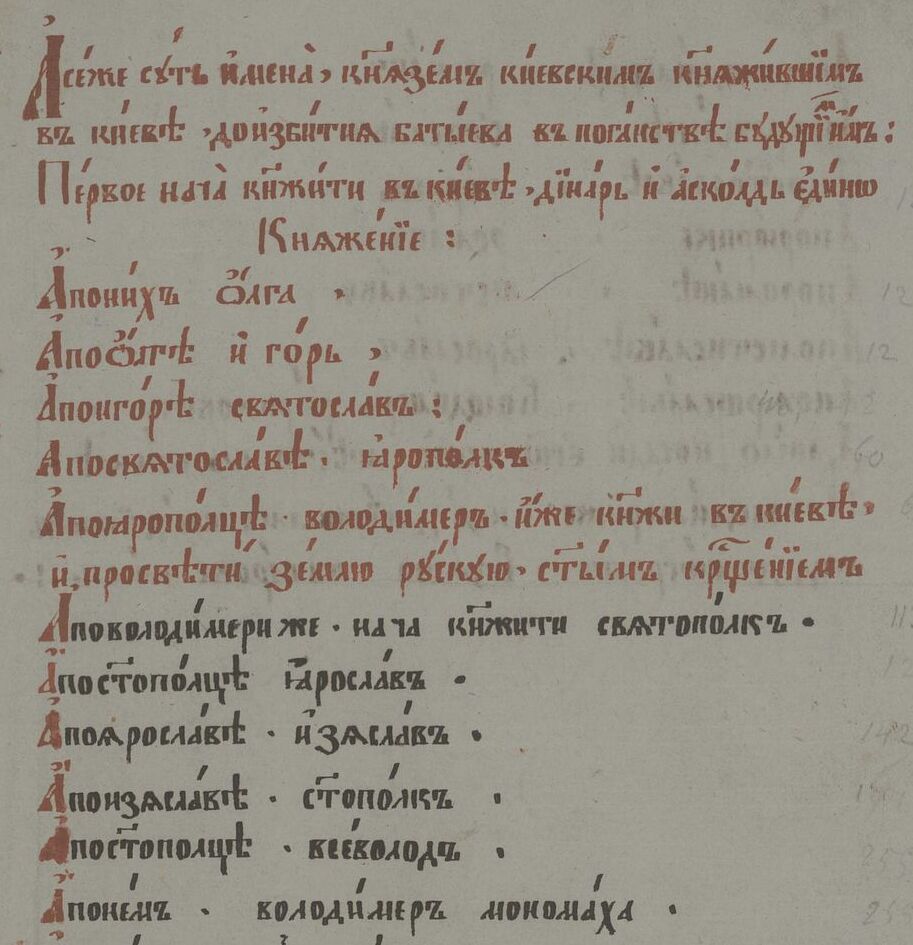 А се́же сꙋ́ть и҆менà, кн҃ѧзе́мъ кíевскимъ кн҃ѧжи́вшїмъ
въ кíевѣ, до и҆збитиѧ баты́ева въ пога́нствѣ бꙋдꙋщїи́мъ :
Пе́рвое нача̀ кн҃жи́ти въ кíевѣ, дїна́рь и҆ а҆ско́лдь є҆ди́но
Кнѧже́нїе :
А҆ по ни́хъ ѻ҆́лга ,
А҆ по ѻ҆́лгѣ и҆ го́рь ,
А҆ по иго́рѣ свѧтосла́въ :
А по свѧтосла́вѣ . ꙗ҆ропо́лкъ
А҆ по ꙗропо́лцѣ . володи́меръ . и҆́же кн҃жи въ кíевѣ ,
и҆ просвѣти́ зе́млю рꙋ́скую . ст҃ы́мъ кр҃ще́нїемъ
А҆ по володи́мери же . нача кн҃жити свѧтопо́лкъ .
А҆ по ст҃опо́лцѣ ꙗ҆росла́въ .
А҆ по ꙗросла́вѣ . и҆зѧсла́въ .
А҆ по изѧсла́вѣ . ст҃опо́лкъ .
А҆ по ст҃ополцѣ . все́володъ .
А҆ по не́мъ . володи́меръ монома́ха .